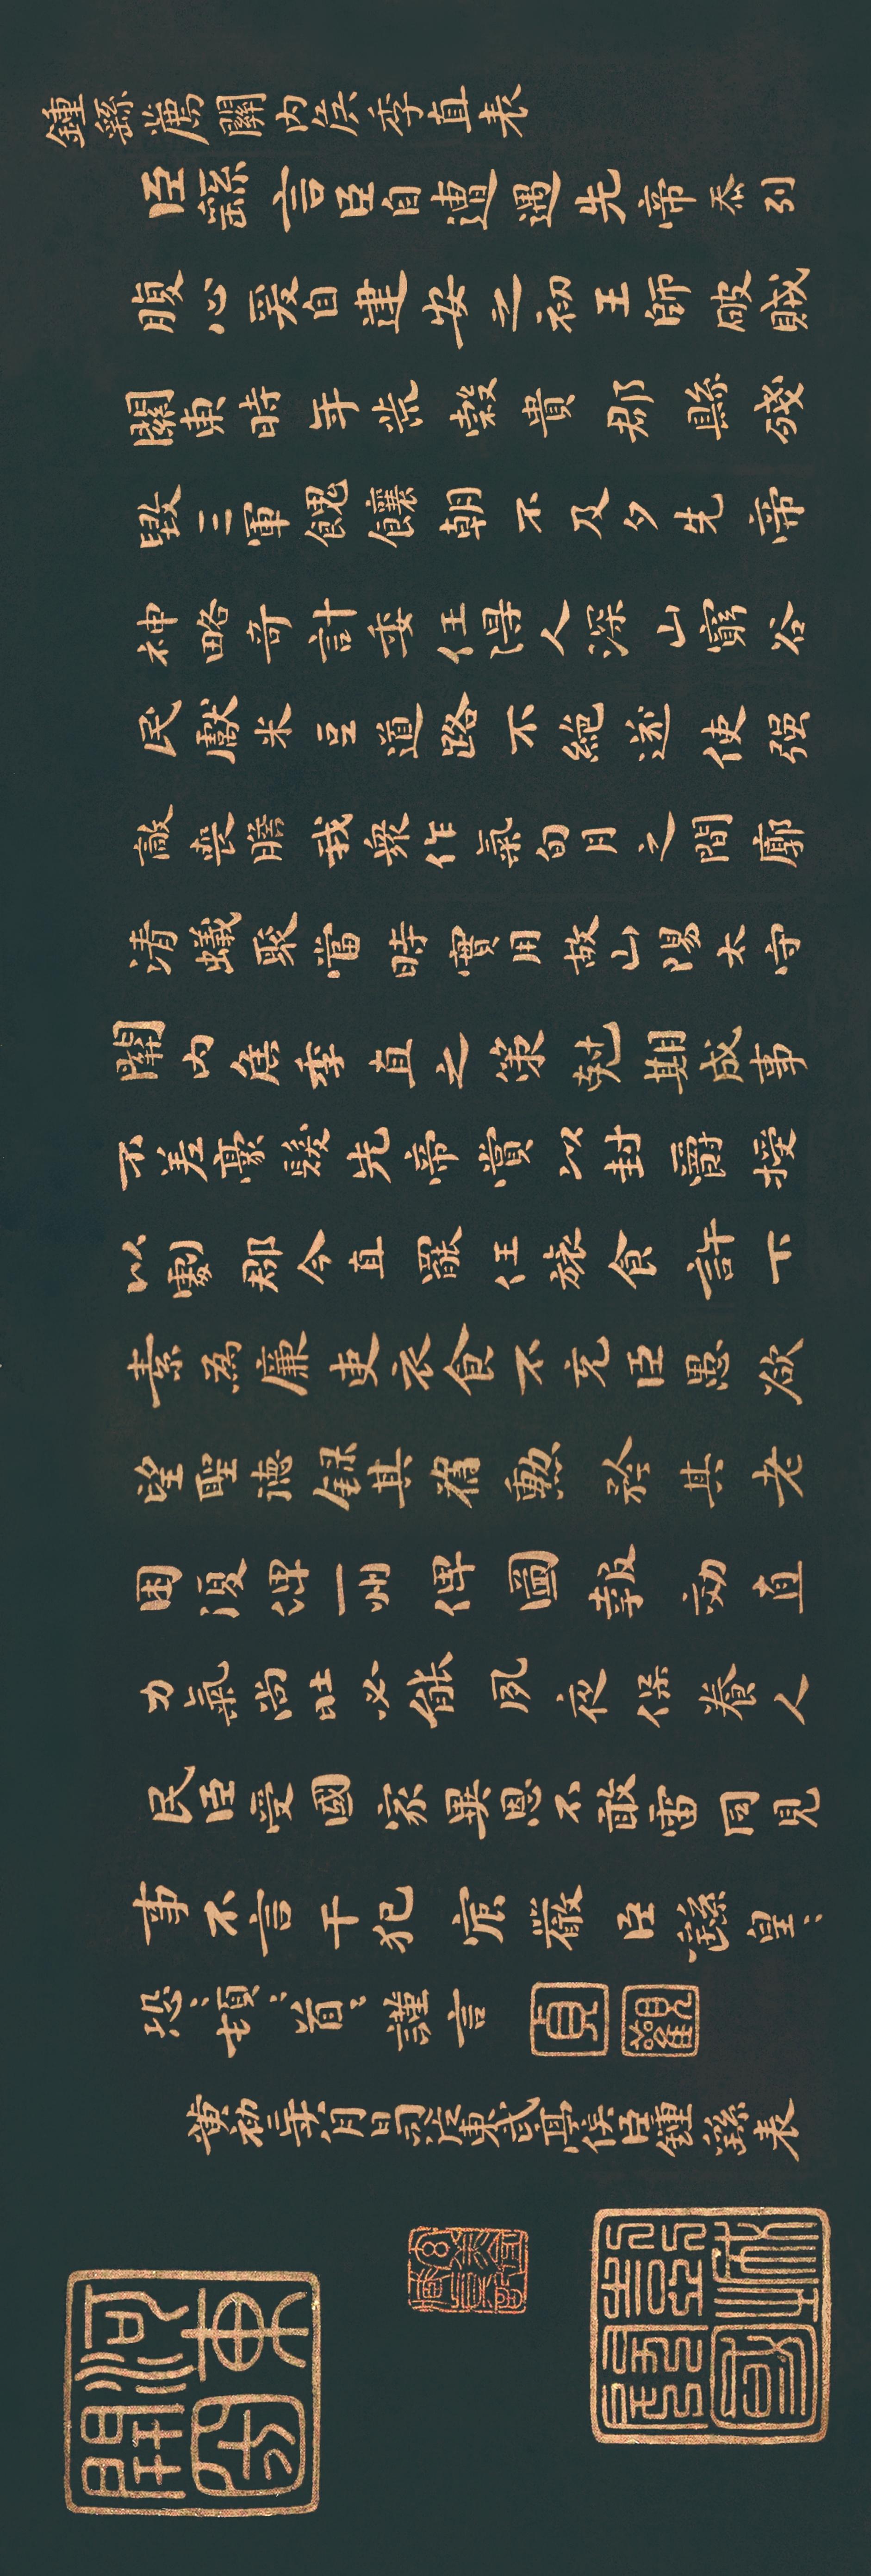 鍾繇薦關內侯季直表
臣繇言臣自遭遇先帝忝列
腹心爰自建安之初王師破賊
關東時年荒穀貴郡縣殘
毀三軍餽饟朝不及夕先帝
神略奇計委任得人深山窮谷
民獻米豆道路不絕遂使強
敵喪膽我衆作氣旬月之間廓
清蟻聚當時實用故山陽太守
關內侯季直之策剋期成事
不差豪髮先帝賞以封爵授
以劇郡今直罷任旅食許下
素爲廉吏衣食不充臣愚欲
望聖德錄其舊勳矜其老
困復俾一州俾圖報効直
力氣尚壯必能夙夜保養人
民臣受國家異恩不敢雷同見
事不言干犯宸嚴臣繇皇〻
恐〻頓〻首〻謹言
貞觀
黃初二年八月日司徒東武亭侯臣鍾繇表